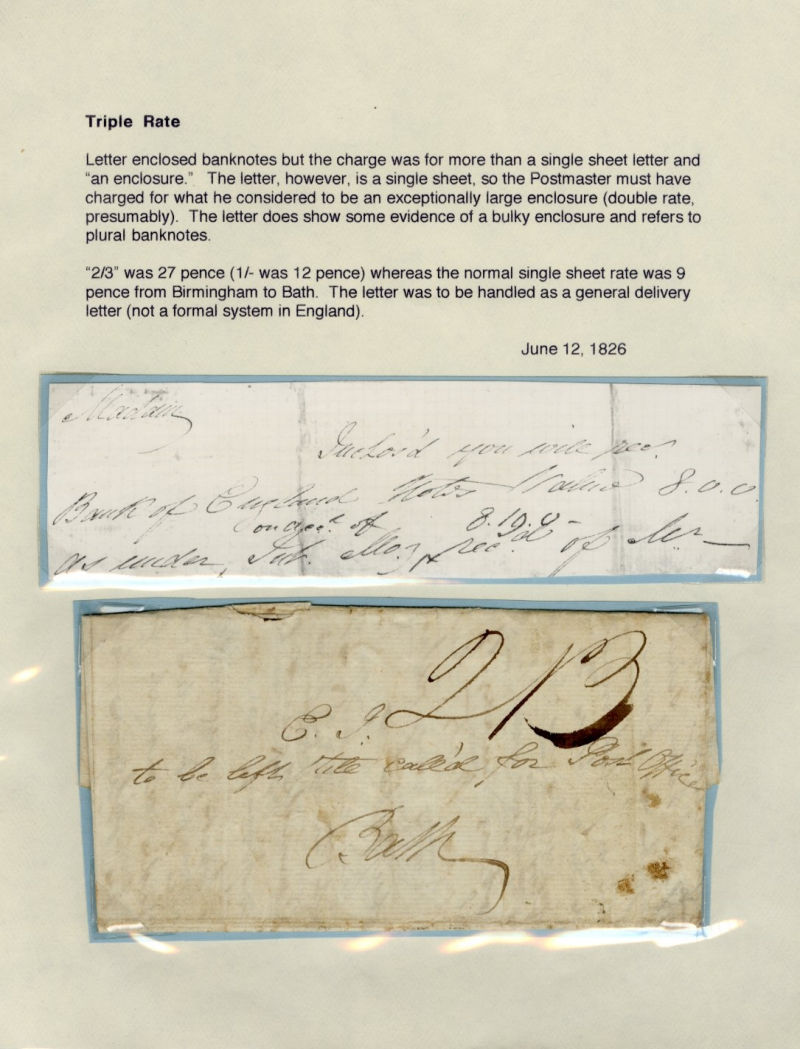 Triple Rate
Letter enclosed banknotes but the charge was for more than a single sheet letter and
"an enclosure." The letter, however, is a single sheet, so the Postmaster must have
charged for what he considered to be an exceptionally large enclosure (double rate,
presumably). The letter does show some evidence of a bulky enclosure and refers to
plural banknotes.
"2/3" was 27 pence (1/- was 12 pence) whereas the normal single sheet rate was 9
pence from Birmingham to Bath. The letter was to be handled as a general delivery
letter (not a formal system in England).
June 12, 1826
Madam
Inclos'd you will rec.
Bank of England Notes Value 8.0.0.
on acct. of 8.19.0-
as under, rec'd of Mr
2/3
E. I.
to be left till call'd for Post Office
Bath